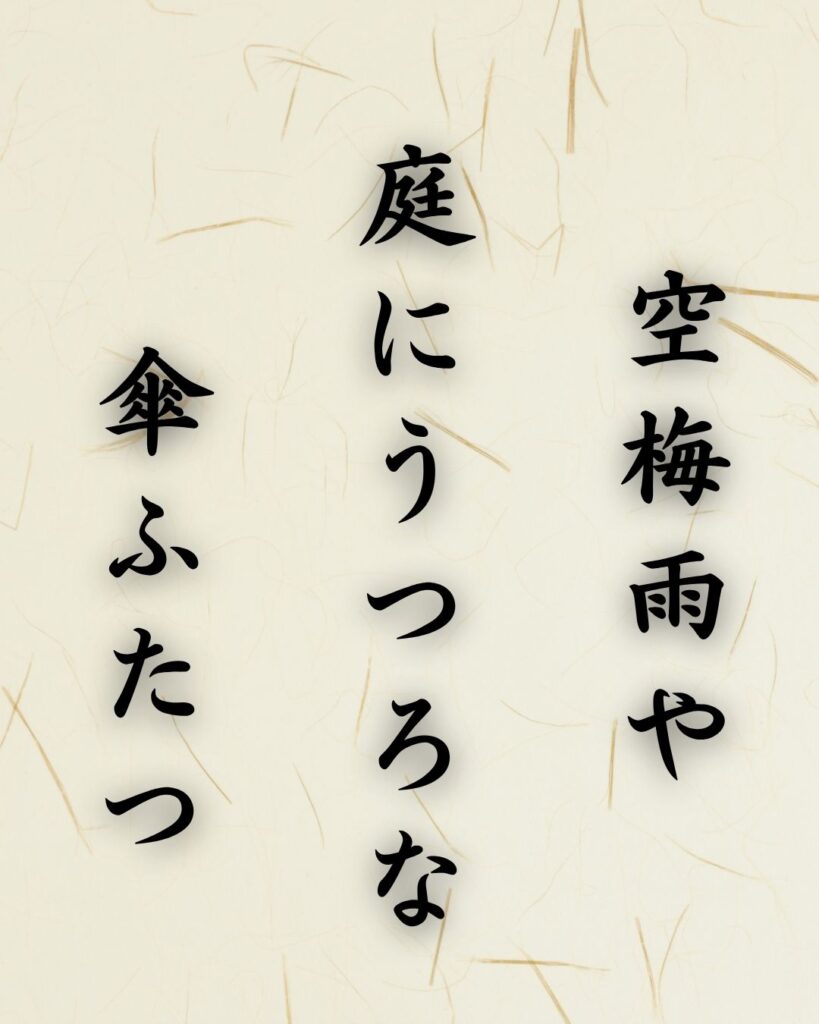 空梅雨や
庭にうつろな
傘ふたつ